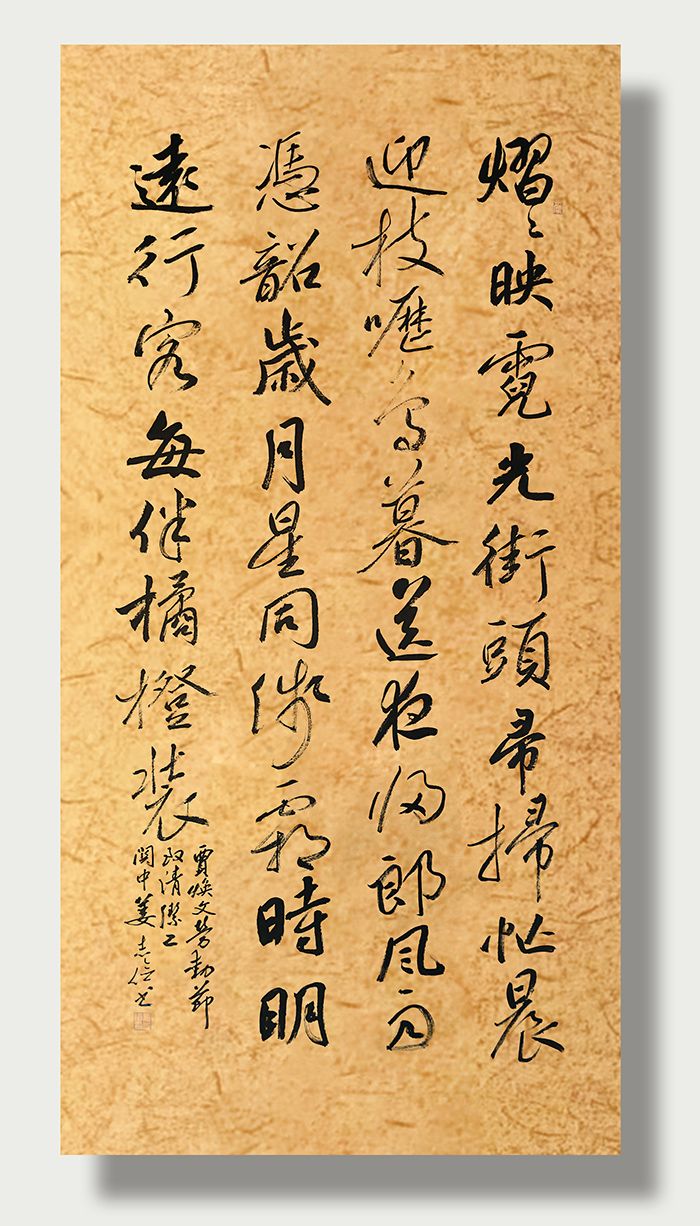 熠〻映霓光街頭帚掃忙晨
迎枝嚦鶯暮送夜歸郎風雨
憑韶歲月星同霜時明
遠行客每伴橘橙裝
賈煥文勞動節
致清潔工
関中姜志書